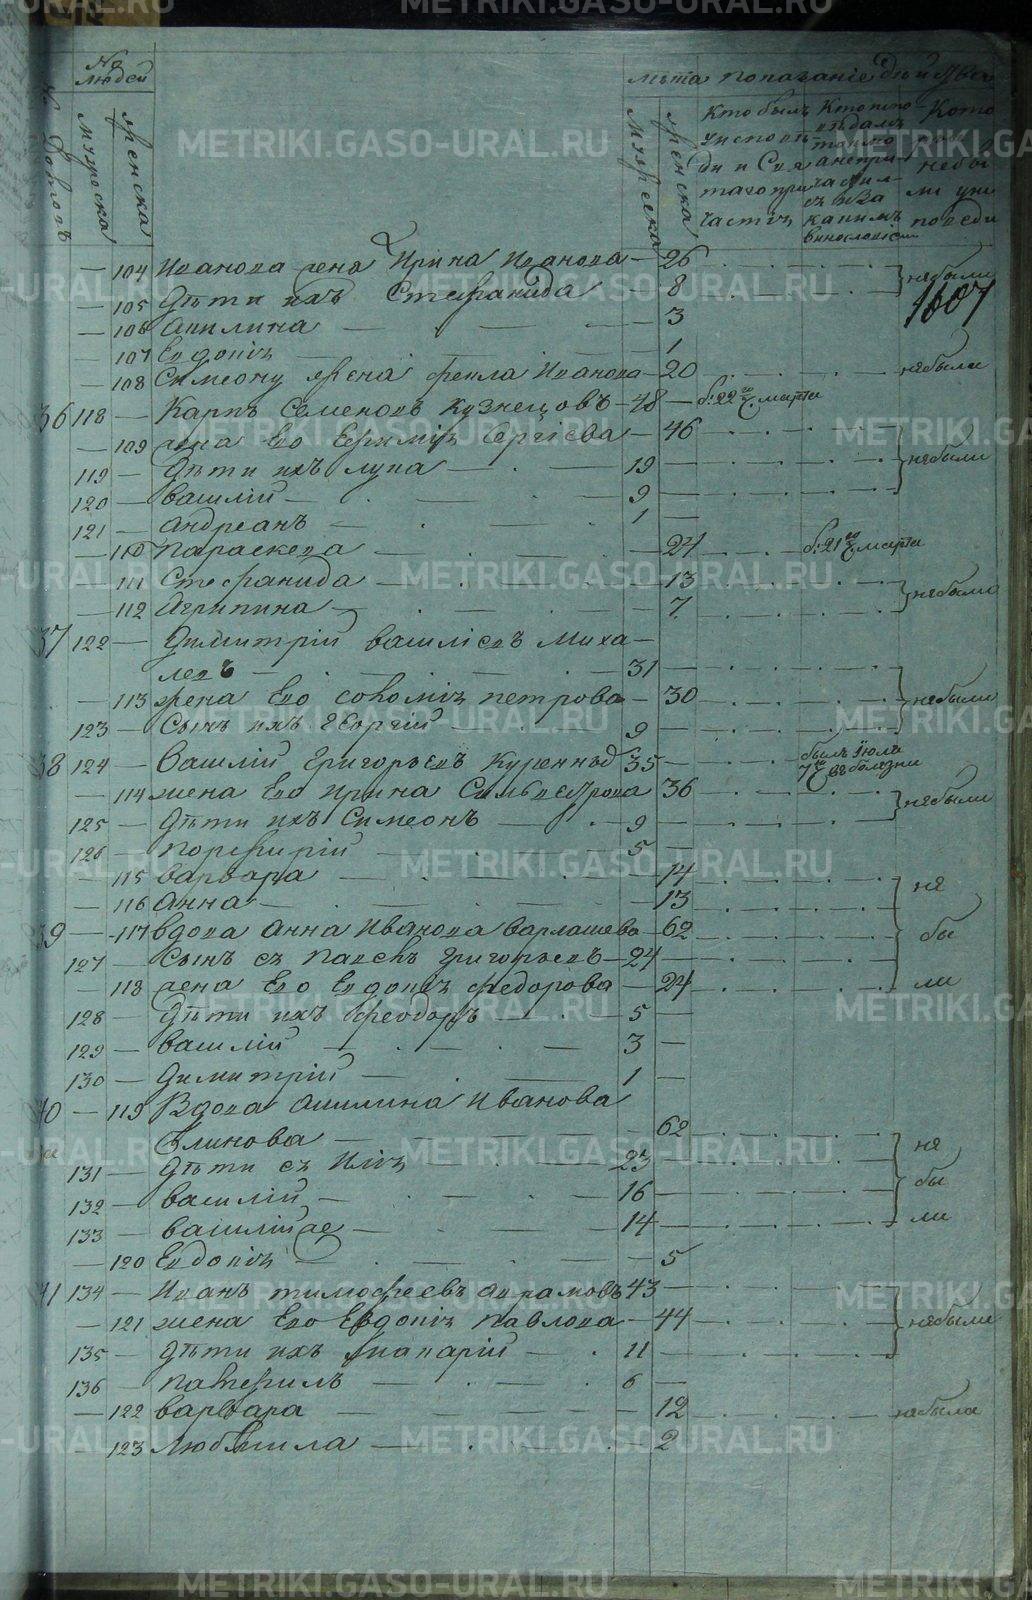 № людей
лѣта
показаніе дѣй
№ Дворовъ
мужеска
женска
мужеска
женска
Кто былъ у исповѣди и Святаго причастія
104 Иванова жена Ирина Иванова 26 небыли
105 Дѣти ихъ Стефанида 8
1607
106 Акилина 3
107 Евдокія 1
108 Симеону жена Фекла Иванова 20 небыла
36 118 Карпъ Семеновъ Кузнецовъ 48 б: 22го марта
109 жена Его Ефимія Сергіева 46
119 Дѣти ихъ Лупа 19 небыли
120 Василій 9
121 Андреанъ 1
110 Параскева 24 б: 21го марта
111 Стефанида 13
112 Агрипина 7 небыли
37 122 Димитрій Василіевъ Миха
левъ 31
113 жена Его Соломія Петрова 30 небыли
123 Сынъ ихъ Георгий 9
38 124 Василій Григорьевъ 35 былъ Іюля
7го въ болезни
114 жена Его Ирина Сильвестрова 36 небыли
125 Дѣти ихъ Симеонъ 9
126 Порфирій 5
115 Варвара 14 не
116 Анна 13
39 117 Вдова Анна Иванова Варлашева 62 бы
127 Сынъ ея Павелъ Григорьевъ 24
118 жена Его Евдокія Федорова 24 ли
128 Дѣти ихъ Феодоръ 5
129 Василій 3
130 Димитрій 1
40 119 Вдова Акилина Иванова
Блинова 62 не
131 Дѣти ея Илія 23
132 Василій 16 бы
133 Василій же 14 ли
120 Евдокія 5
41 134 Иванъ Тимофеевъ Аврамовъ 43
121 жена Его Евдокія Павлова 44 небыли
135 Дѣти ихъ Макарій 11
136 6
122 Варвара 12 небыла
123 2
METRIKI.GASO-URAL.RU